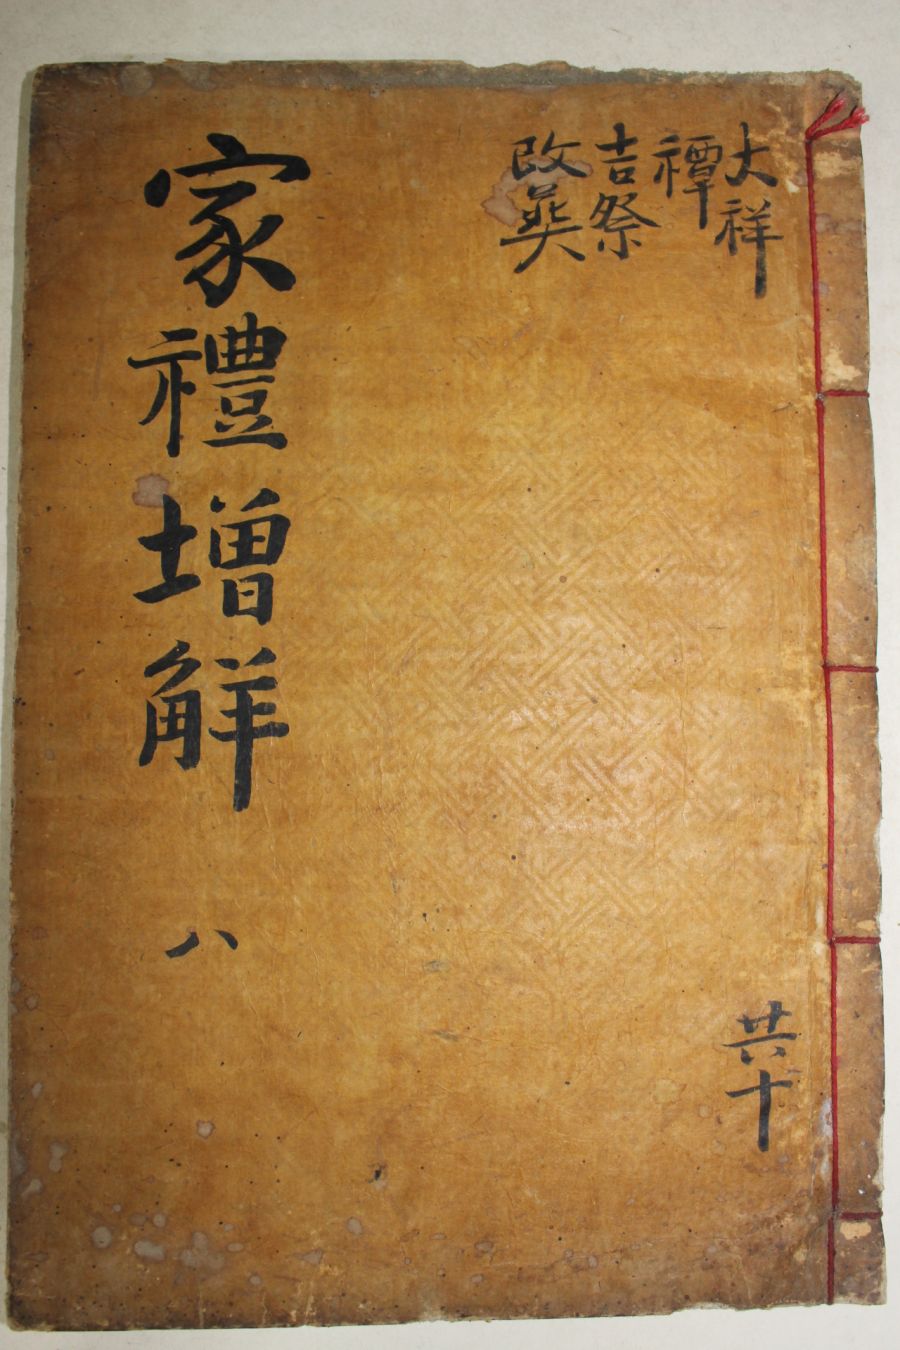 大祥
禫
吉祭
改葬
家禮增觧 八
共十